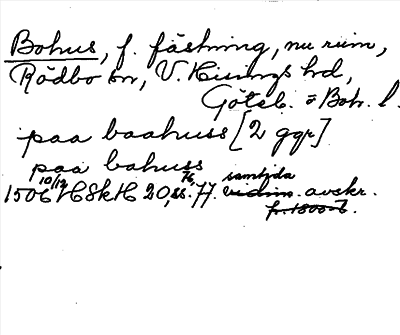 Bohus, f. fästning, nu ruin,
Rödbo sn, V. Hisings hd,
Göteb. o Boh. l.
paa baahuss [2 ggr]
paa bahuss
1506 10/12 HSkH 20, ss. 76, 77. samtida avskr.